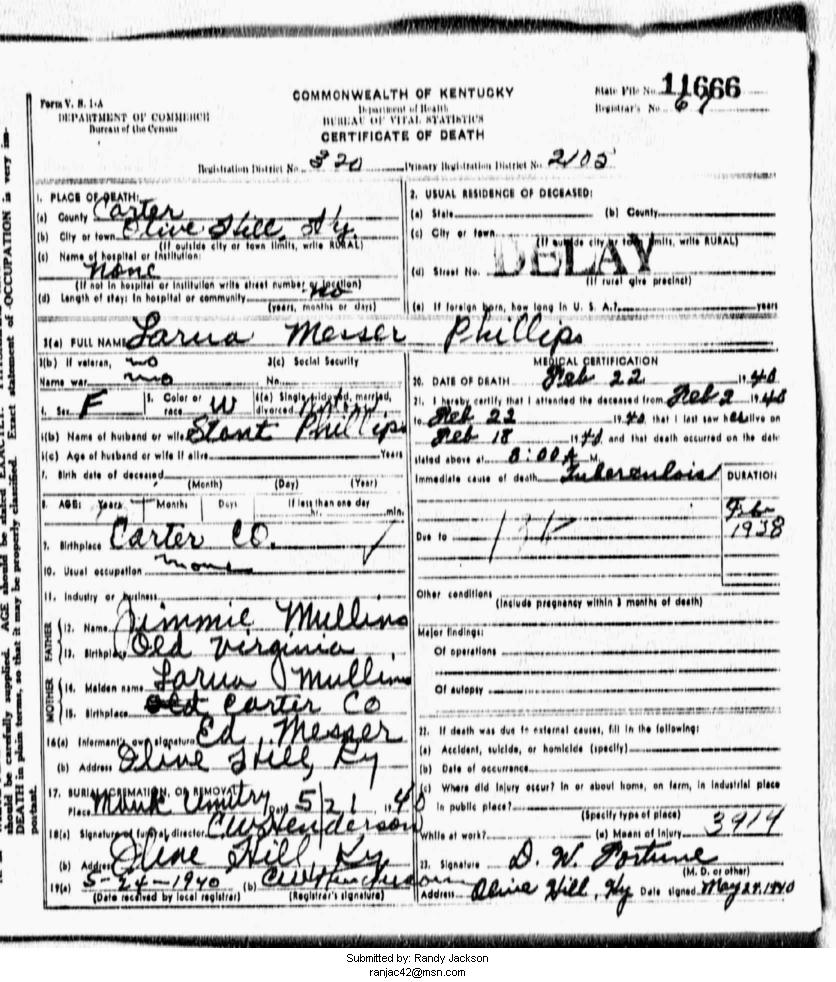 COMMONWEALTH OF KENTUCKY
Department of Health
BUREAU OF VITAL STATISTICS
CERTIFICATE OF DEATH
Form V. S. 1-A
DEPARTMENT OF COMMERCE
Bureau of the Census
State File No. 11666
Registrar's No. 67
Registration District No. 320 Primary Registration District No. 2105
1. PLACE OF DEATH:
(a) County Carter
(b) City or town Olive Hill, Ky
(If outside city or town limits, write RURAL)
(c) Name of hospital or institution:
None
(If not in hospital or institution write street number or location)
(d) Length of stay: In hospital or community no
(years, months or days)
2. USUAL RESIDENCE OF DECEASED:
(a) State (b) County
(c) City or town
(If outside city or town limits, write RURAL)
DELAY
(d) Street No.
(If rural give precinct)
(e) If foreign born, how long in U. S. A.? years
3(a) FULL NAME Larua Messer Phillips
3(b) If veteran, no 3(c) Social Security
Name war no No.
4. Sex F 5. Color or race W 6(a) Single, widowed, married, divorced
6(b) Name of husband or wife Stant Phillips
6(c) Age of husband or wife if alive Years
7. Birth date of deceased
(Month) (Day) (Year)
8. AGE: Years Months Days If less than one day
hr. min.
9. Birthplace Carter Co.
10. Usual occupation none
11. Industry or business
FATHER
12. Name Jimmie Mullins
13. Birthplace Old Virginia
MOTHER
14. Maiden name Larua Mullins
15. Birthplace Carter Co
16(a) Informant's own signature Ed Messer
(b) Address Olive Hill, Ky
17. BURIAL, CREMATION, OR REMOVAL
Place Date 5/21 1940
18(a) Signature of funeral director CW Henderson
(b) Address Olive Hill, Ky
19(a) 5-24-1940 (b) CW Henderson
(Date received by local registrar) (Registrar's signature)
MEDICAL CERTIFICATION
20. DATE OF DEATH Feb 22 1940
21. I hereby certify that I attended the deceased from Feb 2 1940
to Feb 22 1940 that I last saw her alive on
Feb 18 1940 and that death occurred on the date
stated above at 8:00 A M.
Immediate cause of death Tuberculosis
DURATION
Feb
1938
Due to
Other conditions
(Include pregnancy within 3 months of death)
Major findings:
Of operations
Of autopsy
22. If death was due to external causes, fill in the following:
(a) Accident, suicide, or homicide (specify)
(b) Date of occurrence
(c) Where did injury occur? In or about home, on farm, in industrial place
in public place?
(Specify type of place)
While at work? (e) Means of Injury 3914
23. Signature D. W. Fortune
(M. D. or other)
Address Olive Hill, Ky Date signed May 27, 1940
should be carefully supplied. AGE should be stated EXACTLY.
DEATH in plain terms, so that it may be properly classified. Exact statement of OCCUPATION is very important.
Submitted by: Randy Jackson
ranjac42@msn.com